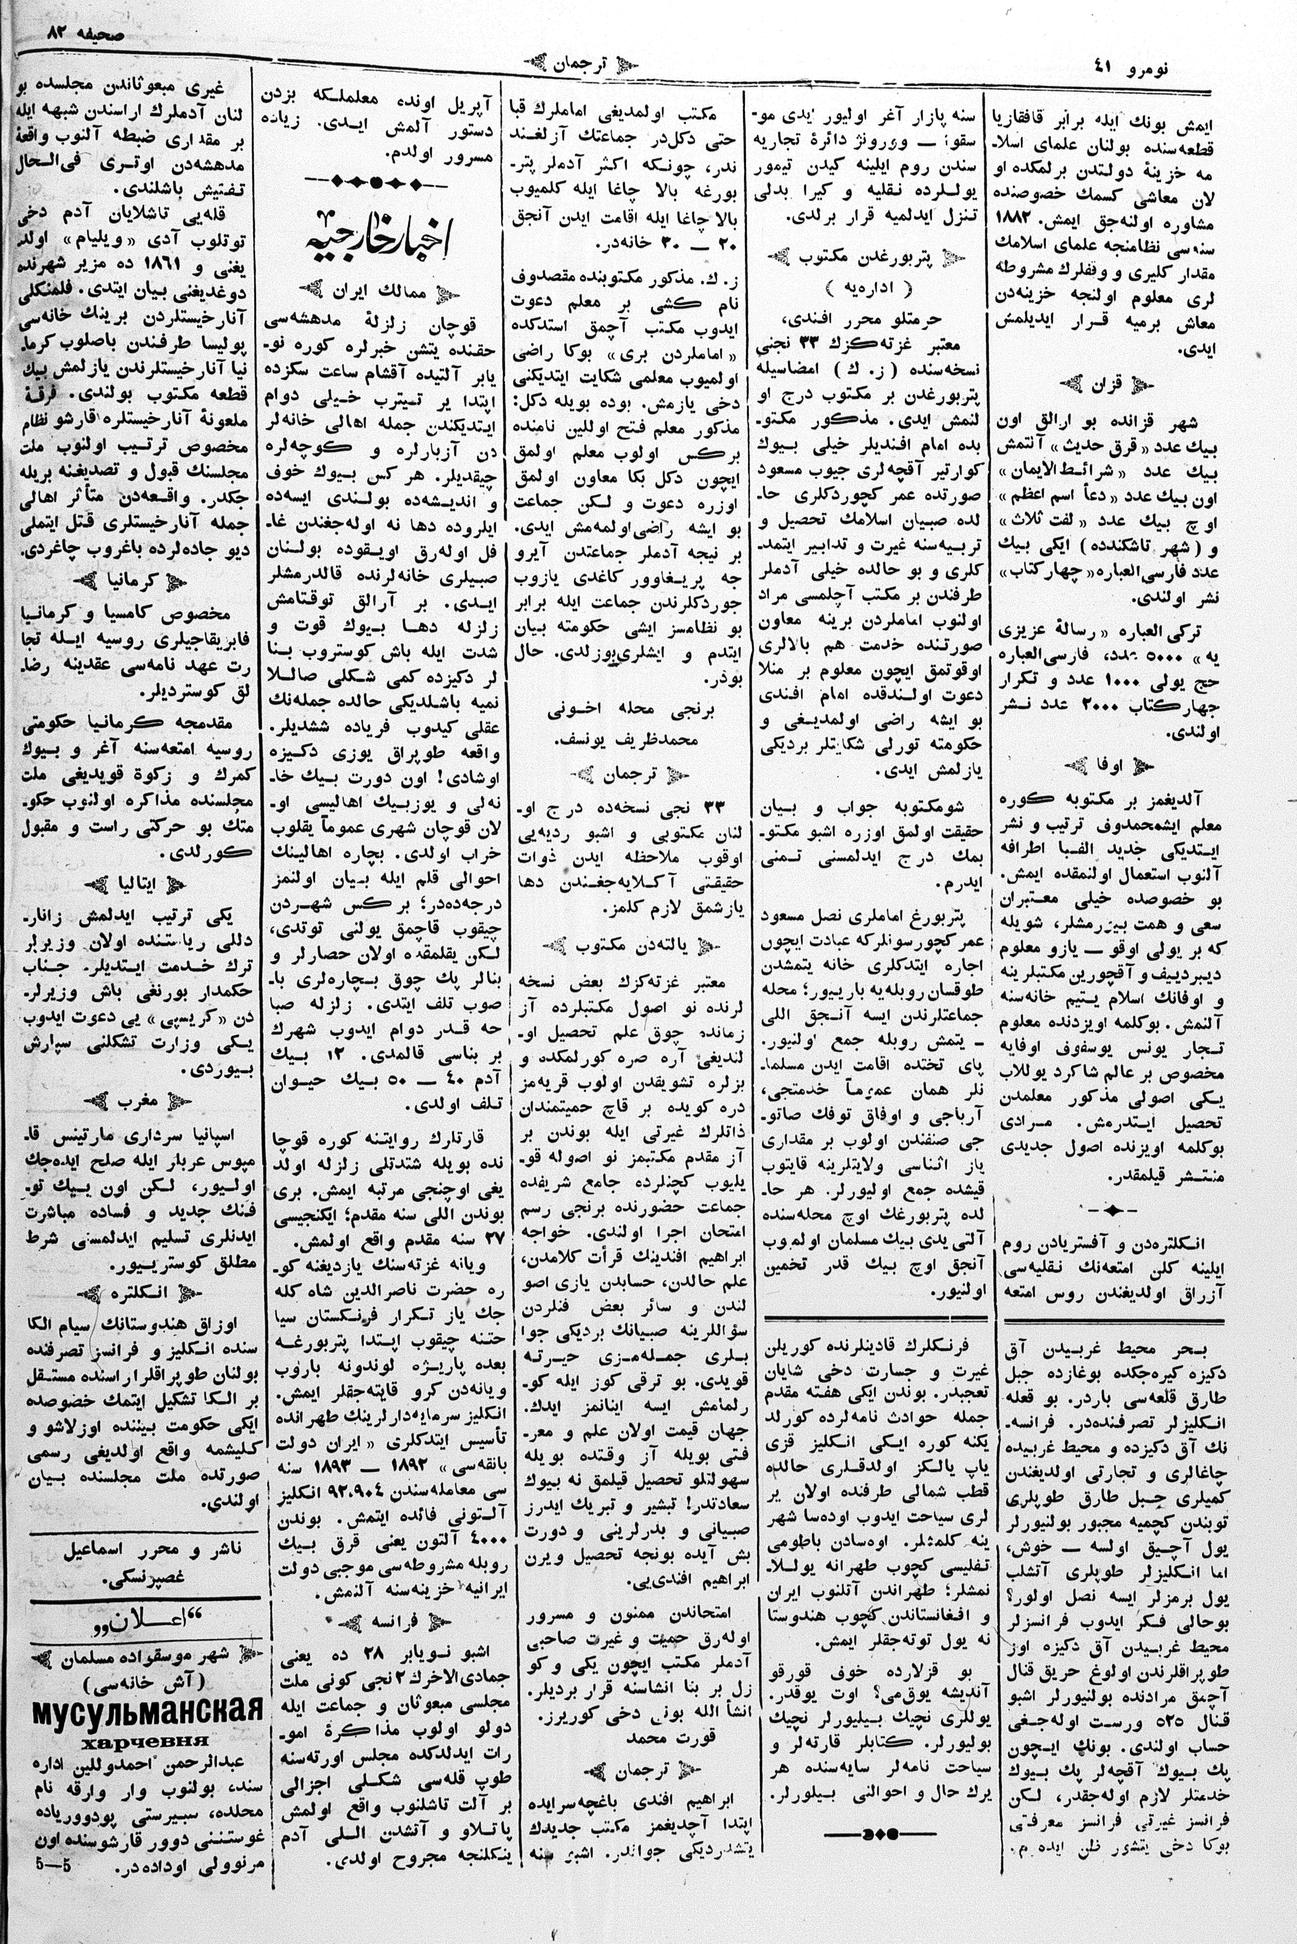 نومرو ٤١
ترجمان
صحيفه ٨٢
ايمش بونك ايله برابر قافقازيا
قطعه‌سنده بولنان علمای اسلا‌ـ
مه خزينهٔ دولتدن برلمكده او
لان معاشی كسمك خصوصنده
مشاوره اولنه‌جق ايمش. ١٨٨٢
سنه‌سی نظامنجه علمای اسلامك
مقدار كليری و وقفلرك مشروطه
لری معلوم اولنجه خزينه‌دن
معاش برميه قرار ايديلمش
ايدی.
قزان
شهر قزانده بو ارالق اون
بيك عدد «فرق حديث» آنتمش
بيك عدد «شرائط الايمان»
اون بيك عدد «دعأ اسم اعظم»
اوچ بيك عدد «لفت ثلاث»
و (شهر تاشكندده) ايكی بيك
عدد فارسی العباره «چهار كتاب»
نشر اولندی.
تركی العباره «رسالهٔ عزيزی
يه» ٥٠٠٠ عدد، فارسی العباره
حج يولی ١٠٠٠ عدد و تكرار
جهار كتاب ٢٠٠٠ عدد نشر
اولندی.
اوفا
آلديغمز بر مكتوبه كوره
معلم ايشمحمدوف ترتيب و نشر
ايتديكی جديد الفبا اطرافه
آلنوب استعمال اولنمقده ايمش.
بو خصوصده خيلی معتبران
سعی و همت بيزرمشلر، شويله
كه بر يولی اوقو — يازو معلوم
ديبردييف و آقچورين مكتبلرينه
و اوفانك اسلام يتيم خانه‌سنه
آلنمش. بوكلمه اويزدنده معلوم
تجار يونس يوسفوف اوفايه
مخصوص بر عالم شاكرد يوللاب
يكی اصولی مذكور معلمدن
تحصيل ايتدره‌ش. مرادی
بوكلمه اويزنده اصول جديدی
منتشر قيلمقدر.
انكلتره‌دن و آفستريادن روم
ايلينه كلن امتعه‌نك نقليه‌سی
آزراق اولديغندن روس امتعه
بحر محيط غربيدن آق
دكيزه كيره‌جكده بوغازده جبل
طارق قلعه‌سی باردر. بو قعله
انكليزلر تصرفنده‌در. فرانسه‌ـ
نك آق دكيزده و محيط غربيده
جاغالری و تجارتی اولديغندن
كميلری جبل طارق طوپلری
توبندن كچميه مجبور بولنيورلر
يول آچيق اولسه — خوش،
اما انكليزلر طوپلری آتشلب
يول برمزلر ايسه نصل اولور؟
بوحالی فكر ايدوب فرانسزلر
محيط غربيدن آق دكيزه اوز
طوپراقلرندن اولوغ حريق قنال
آچمق مرادنده بولنيورلر اشبو
قنال ٥٢٥ ورست اوله‌جغی
حساب اولندی. بونك ايچون
پك بيوك آقچه‌لر پك بيوك
خدمتلر لازم اوله‌جقدر، لكن
فرانسز غيرتی فرانسز معرفتی
بوكا دخی يتشور ظن ايده م.
سنه پازار آغر اوليور ايدی موـ
سقوا — وورونژ دائرهٔ تجاريه
سندن روم ايلينه كيدن تيمور
يوللرده نقليه و كيرا بدلی
تنزل ايدلميه قرار برلدی.
پتربورغدن مكتوب
(اداره‌يه)
حرمتلو محرر افندی،
معتبر غزته‌كزك ٣٣ نجی
نسخه‌سنده (ز. ك) امضاسيله
پتربورغدن بر مكتوب درج او
لنمش ايدی. مذكور مكتوـ
بده امام افنديلر خيلی بيوك
كوارتير آقچه‌لری جيوب مسعود
صورتده عمر كچوردكلری حاـ
لده صبيان اسلامك تحصيل و
تربيه‌سنه غيرت و تدابير ايتمدـ
كلری و بو حالده خيلی آدملر
طرفندن بر مكتب آچلمسی مراد
اولنوب اماملردن برينه معاون
صورتنده خدمت هم بالالری
اوقوتمق ايچون معلوم بر منلا
دعوت اولندقده امام افندی
بو ايشه راضی اولمديغی و
حكومته تورلی شكايتلر برديكی
يازلمش ايدی.
شومكتوبه جواب و بيان
حقيقت اولمق اوزره اشبو مكتوـ
بمك درج ايدلمسنی تمنی
ايدرم.
پتربورغ اماملری نصل مسعود
عمر كچورسونلركه عبادت ايچون
اجاره ايتدكلری خانه يتمشدن
طوقسان روبله‌يه باريبور؛ محله
جماعتلرندن ايسه آنجق اللی
ـ يتمش روبله جمع اولنيور.
پای تختده اقامت ايدن مسلماـ
نلر همان عموماً خدمتجی،
آرباجی و اوفاق توفك صاتوـ
جی صنفندن اولوب بر مقداری
ياز اثناسی ولايتلرينه قايتوب
قيشده جمع اوليورلر. هر حاـ
لده پتربورغك اوچ محله‌سنده
آلتی يدی بيك مسلمان اولموب
آنجق اوچ بيك قدر تخمين
اولنيور.
فرنكلرك قادينلرنده كوريلن
غيرت و جسارت دخی شايان
تعجبدر. بوندن ايكی هفته مقدم
جمله حوادث نامه‌لرده كورلد
يكنه كوره ايكی انكليز قزی
ياپ يالكز اولدقلری حالده
قطب شمالی طرفنده اولان ير
لری سياحت ايدوب اوده‌سا شهر
ينه كلمشلر. اوده‌سادن باطومی
تفليسی كچوب طهرانه يوللاـ
نمشلر؛ طهراندن آتلنوب ايران
و افغانستاندن كچوب هندوستا
نه يول توته‌جقلر ايمش.
بو قزلارده خوف قورقو
آنديشه يوق‌می؟ اوت يوقدر.
يوللری نچيك بيليورلر نچيك
بوليورلر. كتابلر قارته‌لر و
سياحت نامه‌لر سايه‌سنده هر
يرك حال و احوالنی بيلورلر.
مكتب اولمديغی اماملرك قبا
حتی دكل‌در جماعتك آزلغند
ندر، چونكه اكثر آدملر پترـ
بورغه بالا چاغا ايله كلميوب
بالا چاغا ايله اقامت ايدن آنجق
٢٠ — ٣٠ خانه‌در.
ز. ك. مذكور مكتوبنده مقصدوف
نام كشی بر معلم دعوت
ايدوب مكتب آچمق استدكده
«اماملردن بری» بوكا راضی
اولميوب معلمی شكايت ايتديكنی
دخی يازمش. بوده بويله دكل:
مذكور معلم فتح اوللين نامنده
بركس اولوب معلم اولمق
ايچون دكل بكا معاون اولمق
اوزره دعوت و لكن جماعت
بو ايشه راضی اولمه‌مش ايدی.
بر نيجه آدملر جماعتدن آيرو
جه پريغاوور كاغدی يازوب
جوردكلرندن جماعت ايله برابر
بو نظامسز ايشی حكومته بيان
ايتدم و ايشلری بوزلدی. حال
بودر.
برنجی محله اخونی
محمدظريف يونسف.
ترجمان
٣٣ نجی نسخه‌ده درج اوـ
لنان مكتوبی و اشبو رديه‌يی
اوقوب ملاحظه ايدن ذوات
حقيقتی آكلايه‌جغندن دها
يازشمق لازم كلمز.
يالته‌دن مكتوب
معتبر غزته‌كزك بعض نسخه
لرنده نو اصول مكتبلرده آز
زمانده چوق علم تحصيل اوـ
لنديغی آره صره كورلمكده و
بزلره تشويقدن اولوب قريه‌مز
دره كويده بر قاچ حميتمندان
ذاتلرك غيرتی ايله بوندن بر
آز مقدم مكتبمز نو اصوله قوـ
يليوب كچنلرده جامع شريفده
جماعت حضورنده برنجی رسم
امتحان اجرا اولندی. خواجه
ابراهيم افندينك قرأت كلامدن،
علم حالدن، حسابدن يازی اصو
لندن و سائر بعض فنلردن
سؤاللرينه صبيانك برديكی جوا
بلری جمله‌مزی حيرته
قويدی. بو ترقی كوز ايله كوـ
رلمامش ايسه اينانمز ايدك.
جهان قيمت اولان علم و معرـ
فتی بويله آز وقتده بويله
سهولتلو تحصيل قيلمق نه بيوك
سعادتدر! تبشير و تبريك ايدرز
صبيانی و بدرلرينی و دورت
بش آيده بونجه تحصيل ويرن
ابراهيم افندی‌يی.
امتحاندن ممنون و مسرور
اوله‌رق حميت و غيرت صاحبی
آدملر مكتب ايچون يكی و كو
زل بر بنا انشاسنه قرار برديلر.
انشأ الله بونی دخی كوريرز.
قورت محمد
ترجمان
ابراهيم افندی باغچه‌سرايده
اپتدا آچديغمز مكتب جديدك
يتشدرديكی جواندر. اشبو سنه
آپريل اونده معلملكه بزدن
دستور آلمش ايدی. زياده
مسرور اولدم.
اخبار خارجيه
ممالك ايران
قوچان زلزلهٔ مدهشه‌سی
حقنده يتشن خبرلره كوره نوـ
يابر آلتيده آقشام ساعت سكزده
اپتدا ير تيترب خيلی دوام
ايتديكندن جمله اهالی خانه‌لر
دن آزبارلره و كوچه‌لره
چيقديلر. هر كس بيوك خوف
و انديشه‌ده بولندی ايسه‌ده
ايلروده دها نه اوله‌جغندن غاـ
فل اوله‌رق اويقوده بولنان
صبيلری خانه‌لرنده قالدرمشلر
ايدی. بر آرالق توقتامش
زلزله دها بيوك قوت و
شدت ايله باش كوستروب بنا
لر دكيزده كمی شكلی صاللا
نميه باشلديكی حالده جمله‌نك
عقلی كيدوب فرياده ششديلر.
واقعه طوپراق يوزی دكيزه
اوشادی! اون دورت بيك خاـ
نه‌لی و يوزبيك اهاليسی اوـ
لان قوچان شهری عموماً يقلوب
خراب اولدی. بچاره اهالينك
احوالی قلم ايله بيان اولنمز
درجه‌ده‌در؛ بركس شهردن
چيقوب قاچمق يولنی توتدی،
لكن يقلمقده اولان حصارلر و
بنالر پك چوق بچاره‌لری باـ
صوب تلف ايتدی. زلزله صبا
حه قدر دوام ايدوب شهرك
بر بناسی قالمدی. ١٢ بيك
آدم ٤٠ — ٥٠ بيك حيوان
تلف اولدی.
قارتلرك روايتنه كوره قوچا
نده بويله شتدتلی زلزله اولد
يغی اوچنجی مرتبه ايمش. بری
بوندن اللی سنه مقدم؛ ايكنجيسی
٢٧ سنه مقدم واقع اولمش.
ويانه غزته‌سنك يازديغنه كوـ
ره حضرت ناصرالدين شاه كله
جك ياز تكرار فرنكستان سيا
حتنه چيقوب اپتدا پتربورغه
بعده پاريژه لوندونه باروب
ويانه‌دن كرو قايته‌جقلر ايمش.
انكليز سرمايه‌دارلرينك طهرانده
تأسيس ايتدكلری «ايران دولت
بانقه‌سی» ١٨٩٢ — ١٨٩٣ سنه
سی معامله‌سندن ٩٢،٩٠٤ انكليز
آلتونی فائده ايتمش. بوندن
٤٠٠٠ آلتون يعنی قرق بيك
روبله مشروطه‌سی موجبی دولت
ايرانيه خزينه‌سنه آلنمش.
فرانسه
اشبو نويابر ٢٨ ده يعنی
جمادی الاخرك ٢ نجی كونی ملت
مجلسی مبعوثان و جماعت ايله
دولو اولوب مذاكرهٔ اموـ
رات ايدلدكده مجلس اورته‌سنه
طوپ قله‌سی شكلی اجزالی
بر آلت تاشلنوب واقع اولمش
پاتلاو و آتشدن اللی آدم
ينكلنجه مجروح اولدی.
غيری مبعوثاندن مجلسده بو
لنان آدملرك اراسندن شبهه ايله
بر مقداری ضبطه آلنوب واقعهٔ
مدهشه‌دن اوتری فی‌الحال
تفتيش باشلندی.
قله‌يی تاشلايان آدم دخی
توتلوب آدی «ويليام» اولد
يغنی و ١٨٦١ ده مزير شهرنده
دوغديغنی بيان ايتدی. فلمنكلی
آنارخيستلردن برينك خانه‌سی
پوليسا طرفندن باصلوب كرماـ
نيا آنارخيستلرندن يازلمش بيك
قطعه مكتوب بولندی. فرقهٔ
ملعونهٔ آنارخيستلره قارشو نظام
مخصوص ترتيب اولنوب ملت
مجلسنك قبول و تصديغنه بريله
جكدر. واقعه‌دن متأثر اهالی
جمله آنارخيستلری قتل ايتملی
ديو جاده‌لرده باغروب چاغردی.
كرمانيا
مخصوص كامسيا و كرمانيا
فابريقاجيلری روسيه ايله تجا
رت عهد نامه‌سی عقدينه رضاـ
لق كوسترديلر.
مقدمجه كرمانيا حكومتی
روسيه امتعه‌سنه آغر و بيوك
كمرك و زكوة قويديغی ملت
مجلسنده مذاكره اولنوب حكوـ
متك بو حركتی راست و مقبول
كورلدی.
ايتاليا
يكی ترتيب ايدلمش زنارـ
دللی رياستنده اولان وزيرلر
ترك خدمت ايتديلر. جناب
حكمدار بورنغی باش وزيرلرـ
دن «كريسپی» يی دعوت ايدوب
يكی وزارت تشكلنی سپارش
بيوردی.
مغرب
اسپانيا سرداری مارتينس قاـ
مپوس عربلر ايله صلح ايده‌جك
اوليور، لكن اون بيك توـ
فنك جديد و فساده مباشرت
ايدنلری تسليم ايدلمسنی شرط
مطلق كوستريبور.
انكلتره
اوزاق هندوستانك سيام الكا
سنده انكليز و فرانسز تصرفنده
بولنان طوپراقلر اراسنده مستقل
بر الكا تشكيل ايتمك خصوصده
ايكی حكومت بيننده اوزلاشو و
كليشمه واقع اولديغی رسمی
صورتده ملت مجلسنده بيان
اولندی.
ناشر و محرر اسماعيل
غصپرنسكی.
„اعلان“
شهر موسقواده مسلمان
(آش خانه‌سی)
мусульманская
харчевня
عبدالرحمن احمدوللين اداره
سند، بولنوب وار وارقه نام
محلده، سيبرستی پودوورياده
غوستننی دوور قارشوسنده اون
مرنوولی اوداده‌در. 5—5